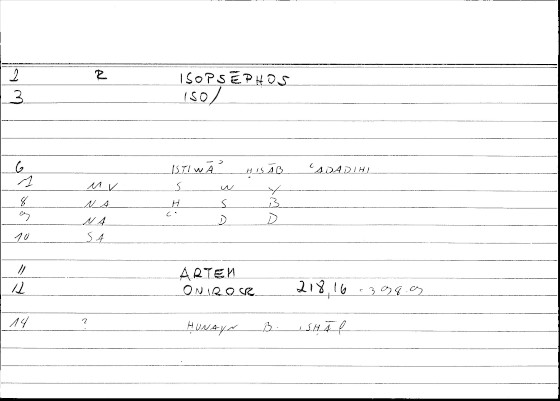 2 R ISOPSĒPHOS
3 ISO/
6 ISTIWĀʾ ḤISĀB ʿADADIHI
7 MV S W Y
8 NA Ḥ S B
9 NA ʿ D D
10 SA
11 ARTEM
12 ONIROCR 218,16 - 398.9
14 ? ḤUNAYN B. ISḤĀQ